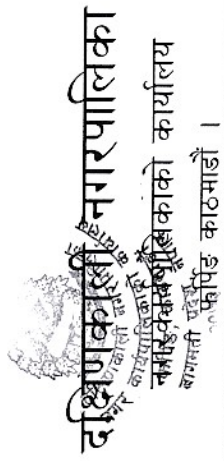 दक्षिणकाली नगरपालिका
नगर कार्यपालिकाको कार्यालय
फर्पिङ काठमाडौं ।